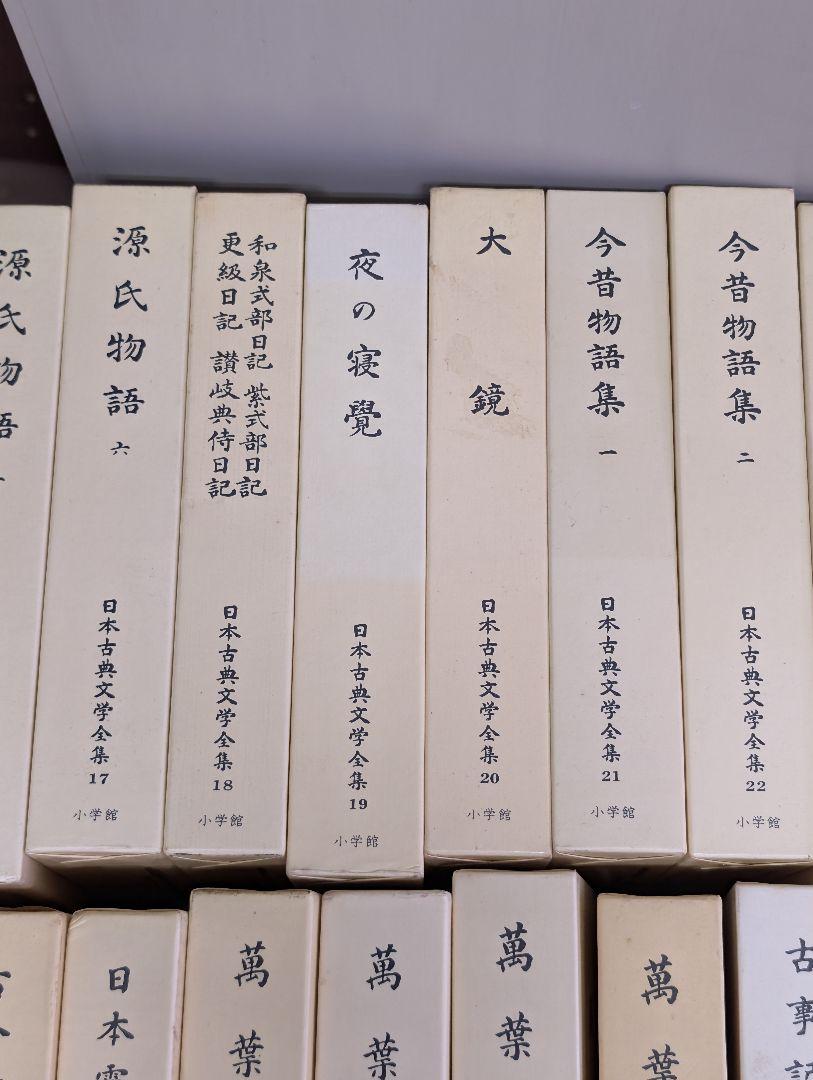 源氏物語
源氏物語 六
日本古典文学全集 17
小学館
和泉式部日記 紫式部日記
更級日記 讃岐典侍日記
日本古典文学全集 18
小学館
夜の寝覺
日本古典文学全集 19
小学館
大鏡
日本古典文学全集 20
小学館
今昔物語集 一
日本古典文学全集 21
小学館
今昔物語集 二
日本古典文学全集 22
小学館
日本霊
萬葉
萬葉
萬葉
萬葉
古事記